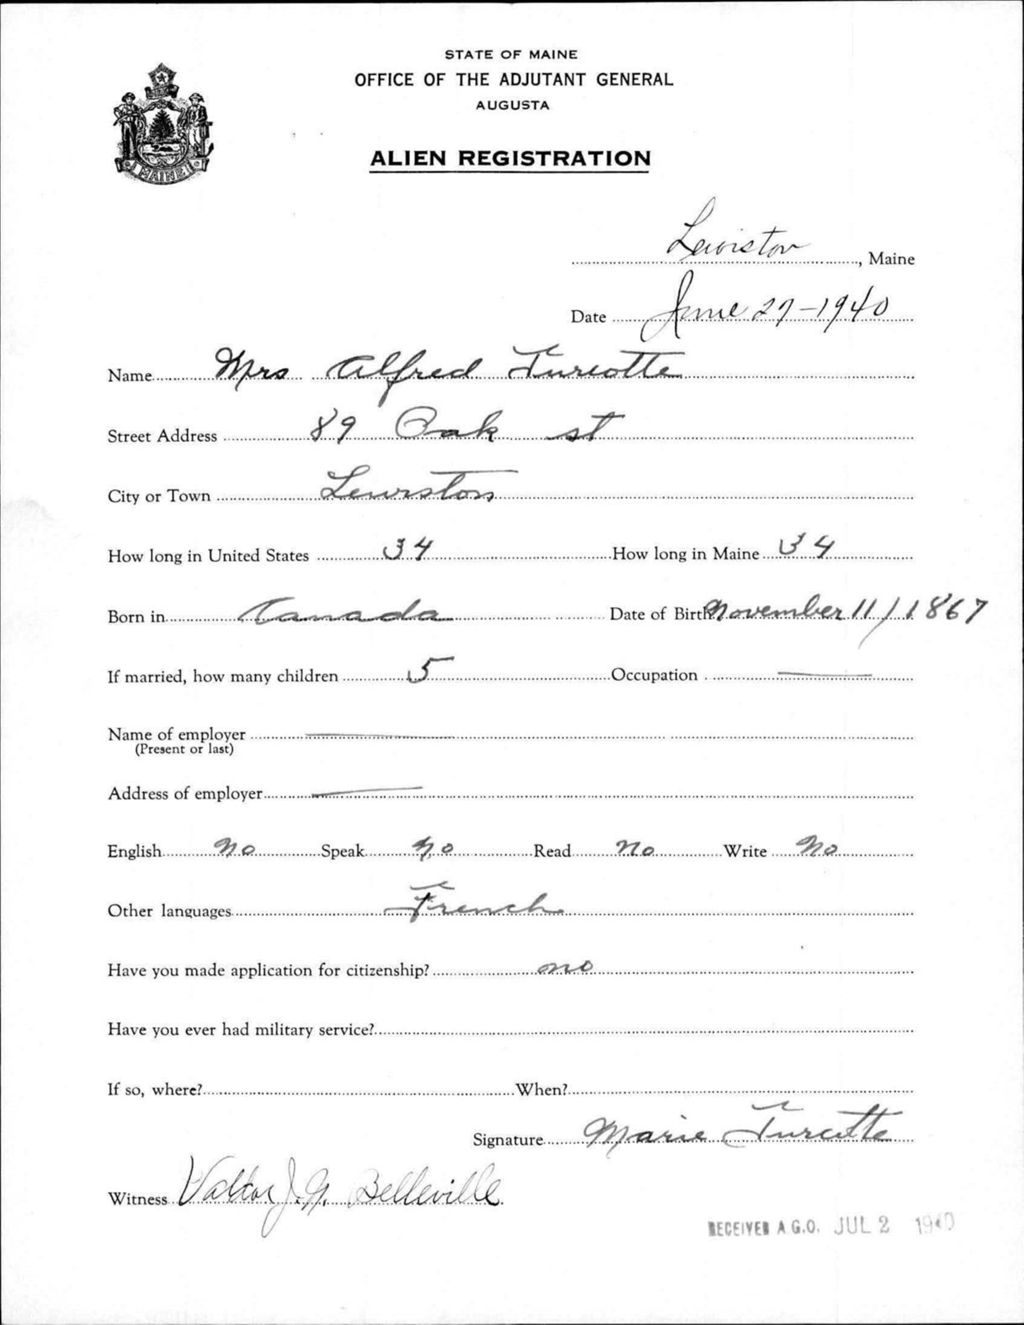 STATE OF MAINE
OFFICE OF THE ADJUTANT GENERAL
AUGUSTA
ALIEN REGISTRATION
MAINE
Lewiston, Maine
Date June 27-1940
Name Mrs Alfred Turcotte
Street Address 89 Oak st
City or Town Lewiston
How long in United States 34 How long in Maine 34
Born in Canada Date of Birth November 11/1867
If married, how many children 5 Occupation —
Name of employer —
(Present or last)
Address of employer —
English No Speak No Read No Write No
Other languages French
Have you made application for citizenship? no
Have you ever had military service?
If so, where? When?
Signature Marie Turcotte
Witness J. N. Belleville
RECEIVED A.G.O. JUL 2 1940